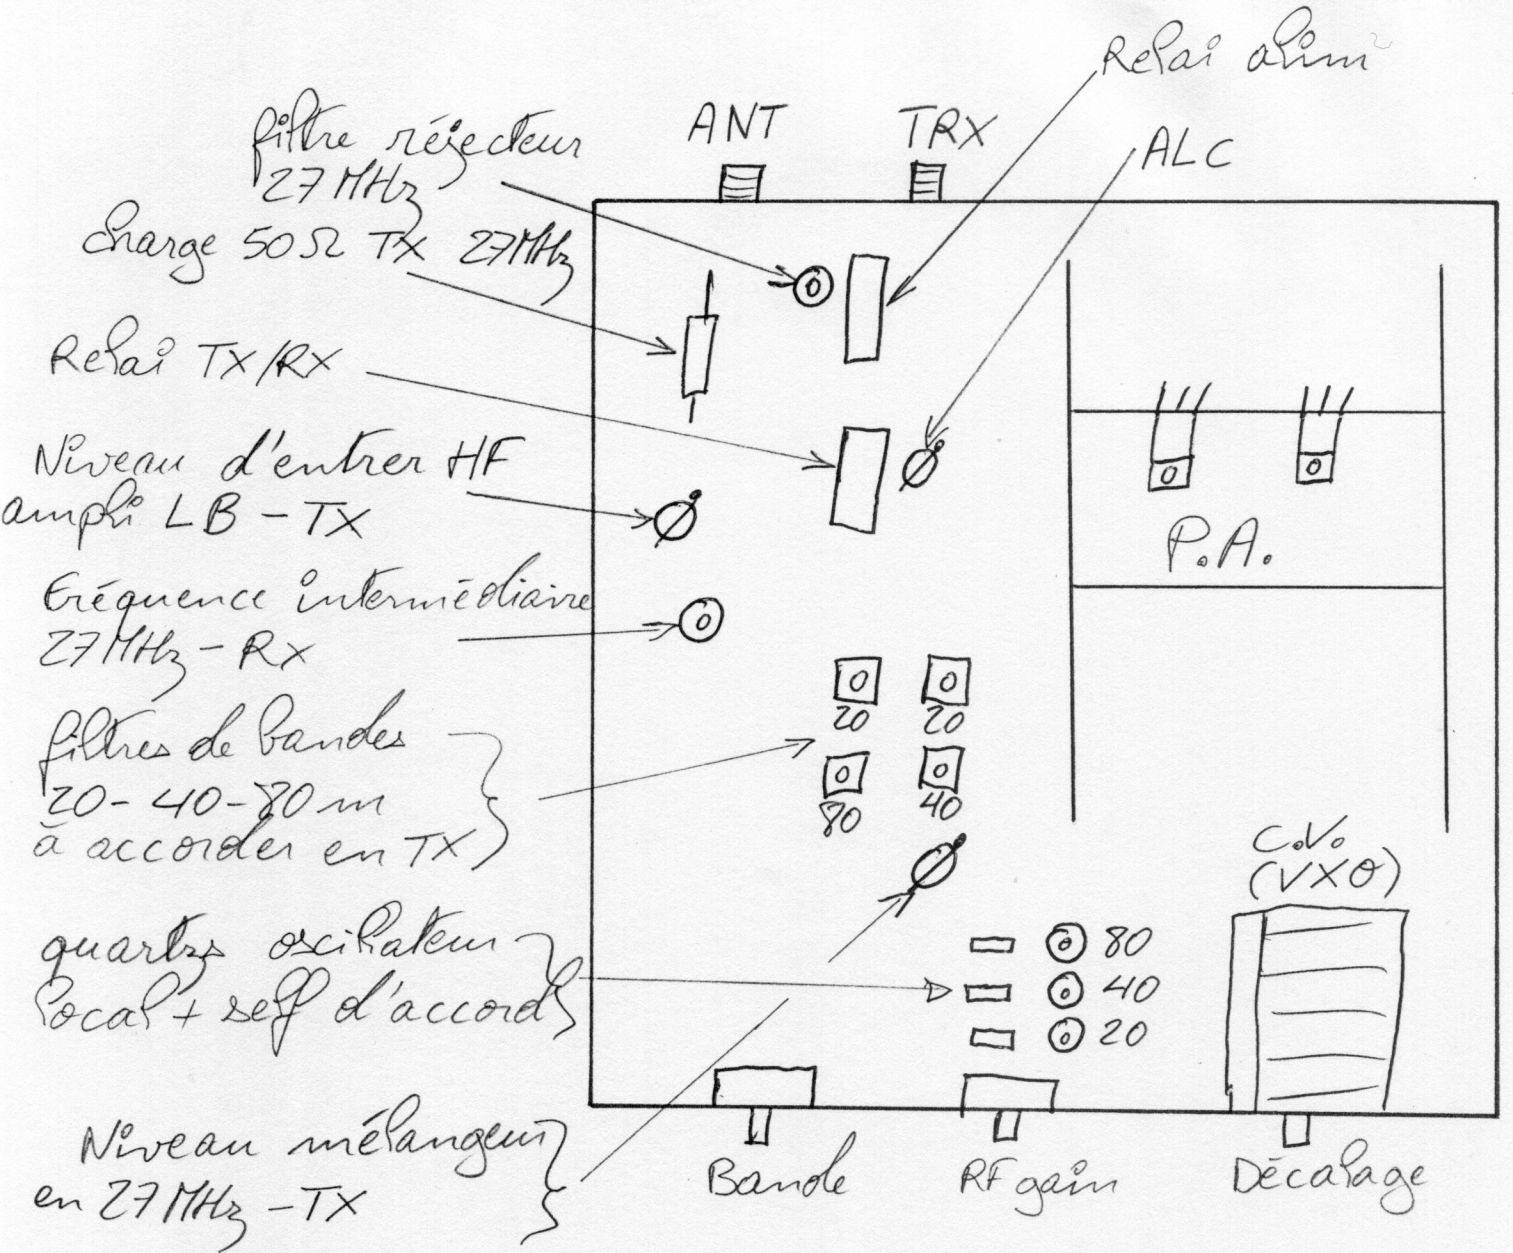 Relai alim
ANT
TRX
ALC
filtre réjecteur
27 MHz
charge 50Ω TX 27MHz
Relai TX/RX
Niveau d'entrer HF
ampli LB - TX
Fréquence intermédiaire
27 MHz - RX
filtres de bandes
20 - 40 - 80 m
à accorder en TX
quartzs oscillateur
local + self d'accord
Niveau mélangeur
en 27 MHz - TX
P.A.
20
20
80
40
C.V.
(VXO)
80
40
20
Bande
RF gain
Décalage